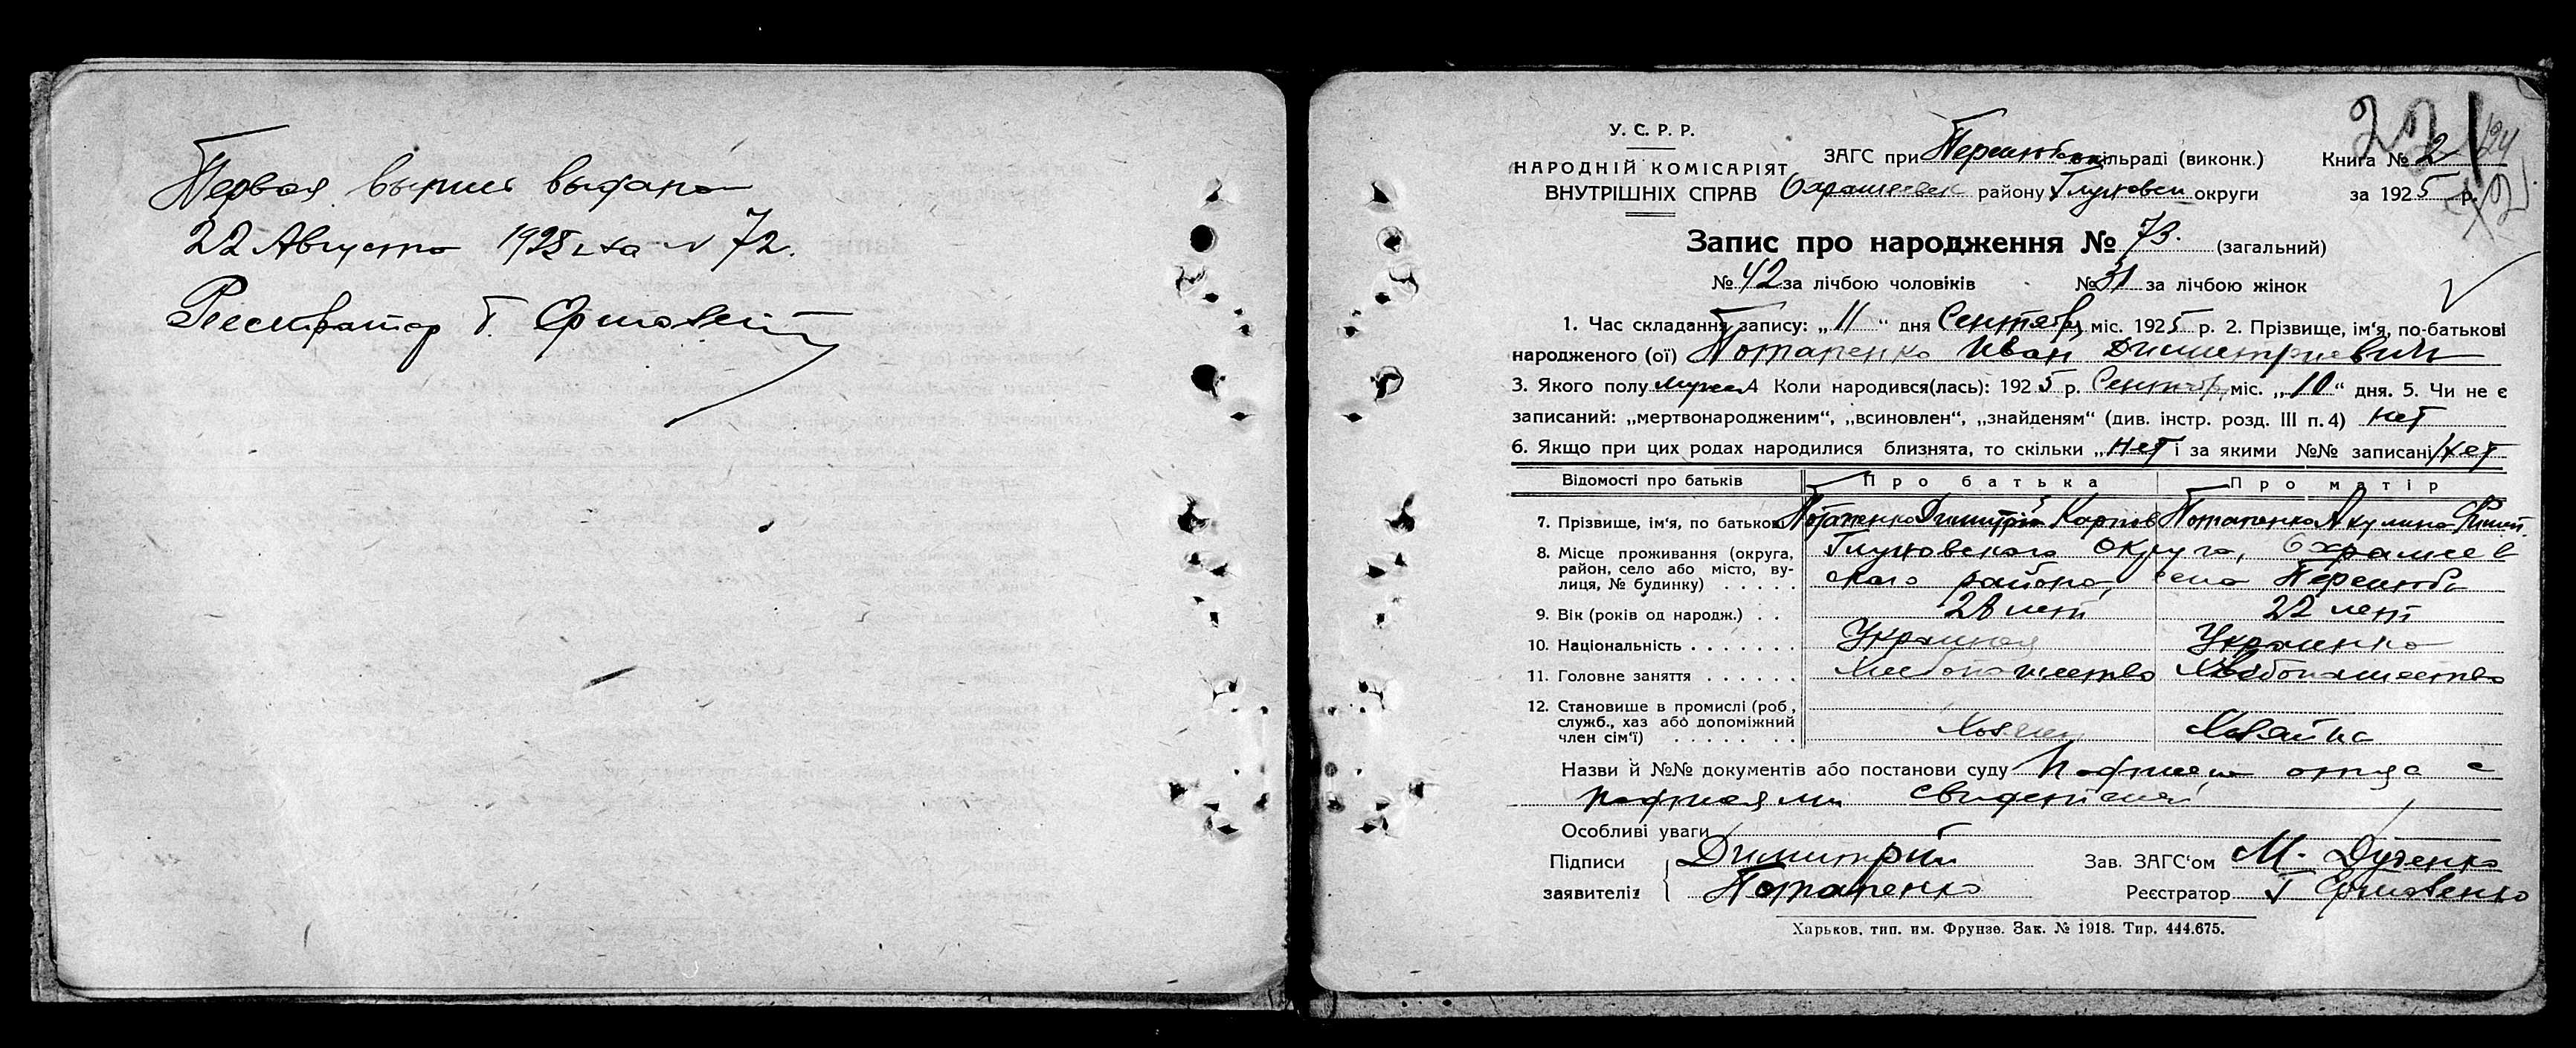 Первая выпись выдана
22 Августа 1925 г. за № 72.
Реестратор Г.
У. С. Р. Р.
НАРОДНІЙ КОМІСАРІЯТ
ВНУТРІШНІХ СПРАВ
ЗАГС при сільраді (виконк.)
району Глуховск округи
Книга № 2
за 1925 р.
Запис про народження № 73. (загальний)
№ 42 за лічбою чоловіків № 31 за лічбою жінок
1. Час складання запису: „11“ дня Сентября міс. 1925 р. 2. Прізвище, ім'я, по-батькові
народженого (ої) Потапенко Иван Димитриевич
3. Якого полу мужск 4 Коли народився(лась): 1925 р. Сентябр міс. „10“ дня. 5. Чи не є
записаний: „мертвонародженим“, „всиновлен“, „знайденям“ (див. інстр. розд. III п. 4) нет
6. Якщо при цих родах народилися близнята, то скільки „нет і за якими №№ записані нет
Відомості про батьків Про батька Про матір
7. Прізвище, ім'я, по батькові Потапенко Димитрий Карпов Потапенко Акулина
8. Місце проживання (округа, район, село або місто, вулиця, № будинку) Глуховского округа,
ского района, села
9. Вік (років од народж.) 28 лет 22 лет
10. Національність Украинец Украинка
11. Головне заняття Хлебопашество Хлебопашество
12. Становище в промислі (роб., служб., хаз або допоміжний член сім'ї) Хозяин Хозяйка
Назви й №№ документів або постанови суду отца с
Особливі уваги
Підписи заявителів Димитрий
Потапенко
Зав. ЗАГС'ом М.
Реєстратор Г
Харьков, тип. им. Фрунзе. Зак. № 1918. Тир. 444.675.